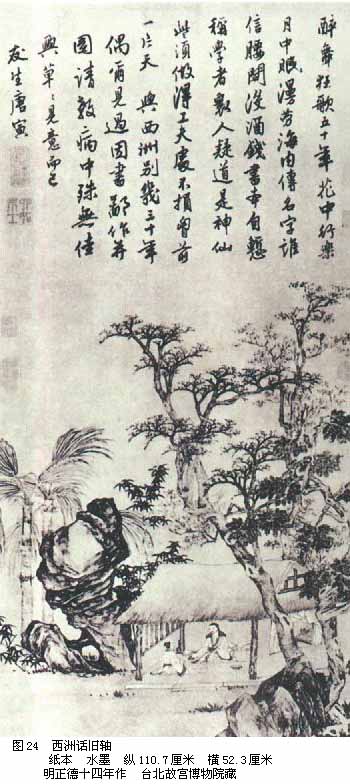 醉舞狂歌五十年花中行樂
月中眠漫勞海内傳名字誰
信腰間沒酒錢書本自慙
稱學者衆人疑道是神仙
些須做得工夫處不損胸前
一片天 與西洲別幾三十年
偶爾見過因書鄙作并
圖請教病中殊無佳
興草〻見意而已
友生唐寅
图24 西洲话旧轴
纸本 水墨 纵110.7厘米 横52.3厘米
明正德十四年作 台北故宫博物院藏